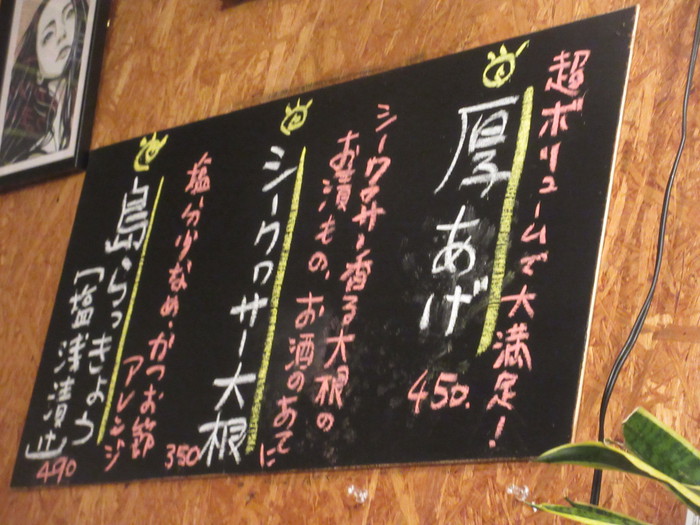 超ボリュームで大満足!
厚あげ
450.
シークワサー香る大根の
お漬もの、お酒のあてに
シークワサー大根
350
塩分少なめ・かつお節
アレンジ
島らっきょう
(塩浅漬け)
490